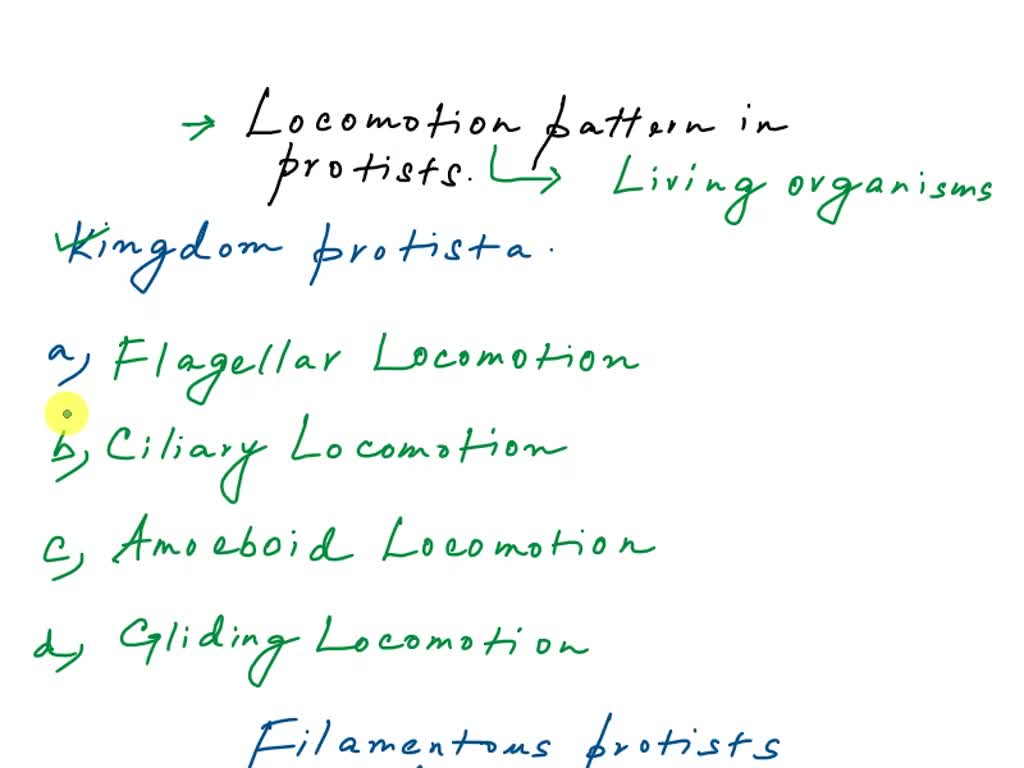 → Locomotion pattern in
protists. → Living organisms
Kingdom protista.
a, Flagellar Locomotion
b, Ciliary Locomotion
c, Amoeboid Locomotion
d, Gliding Locomotion
Filamentous protists